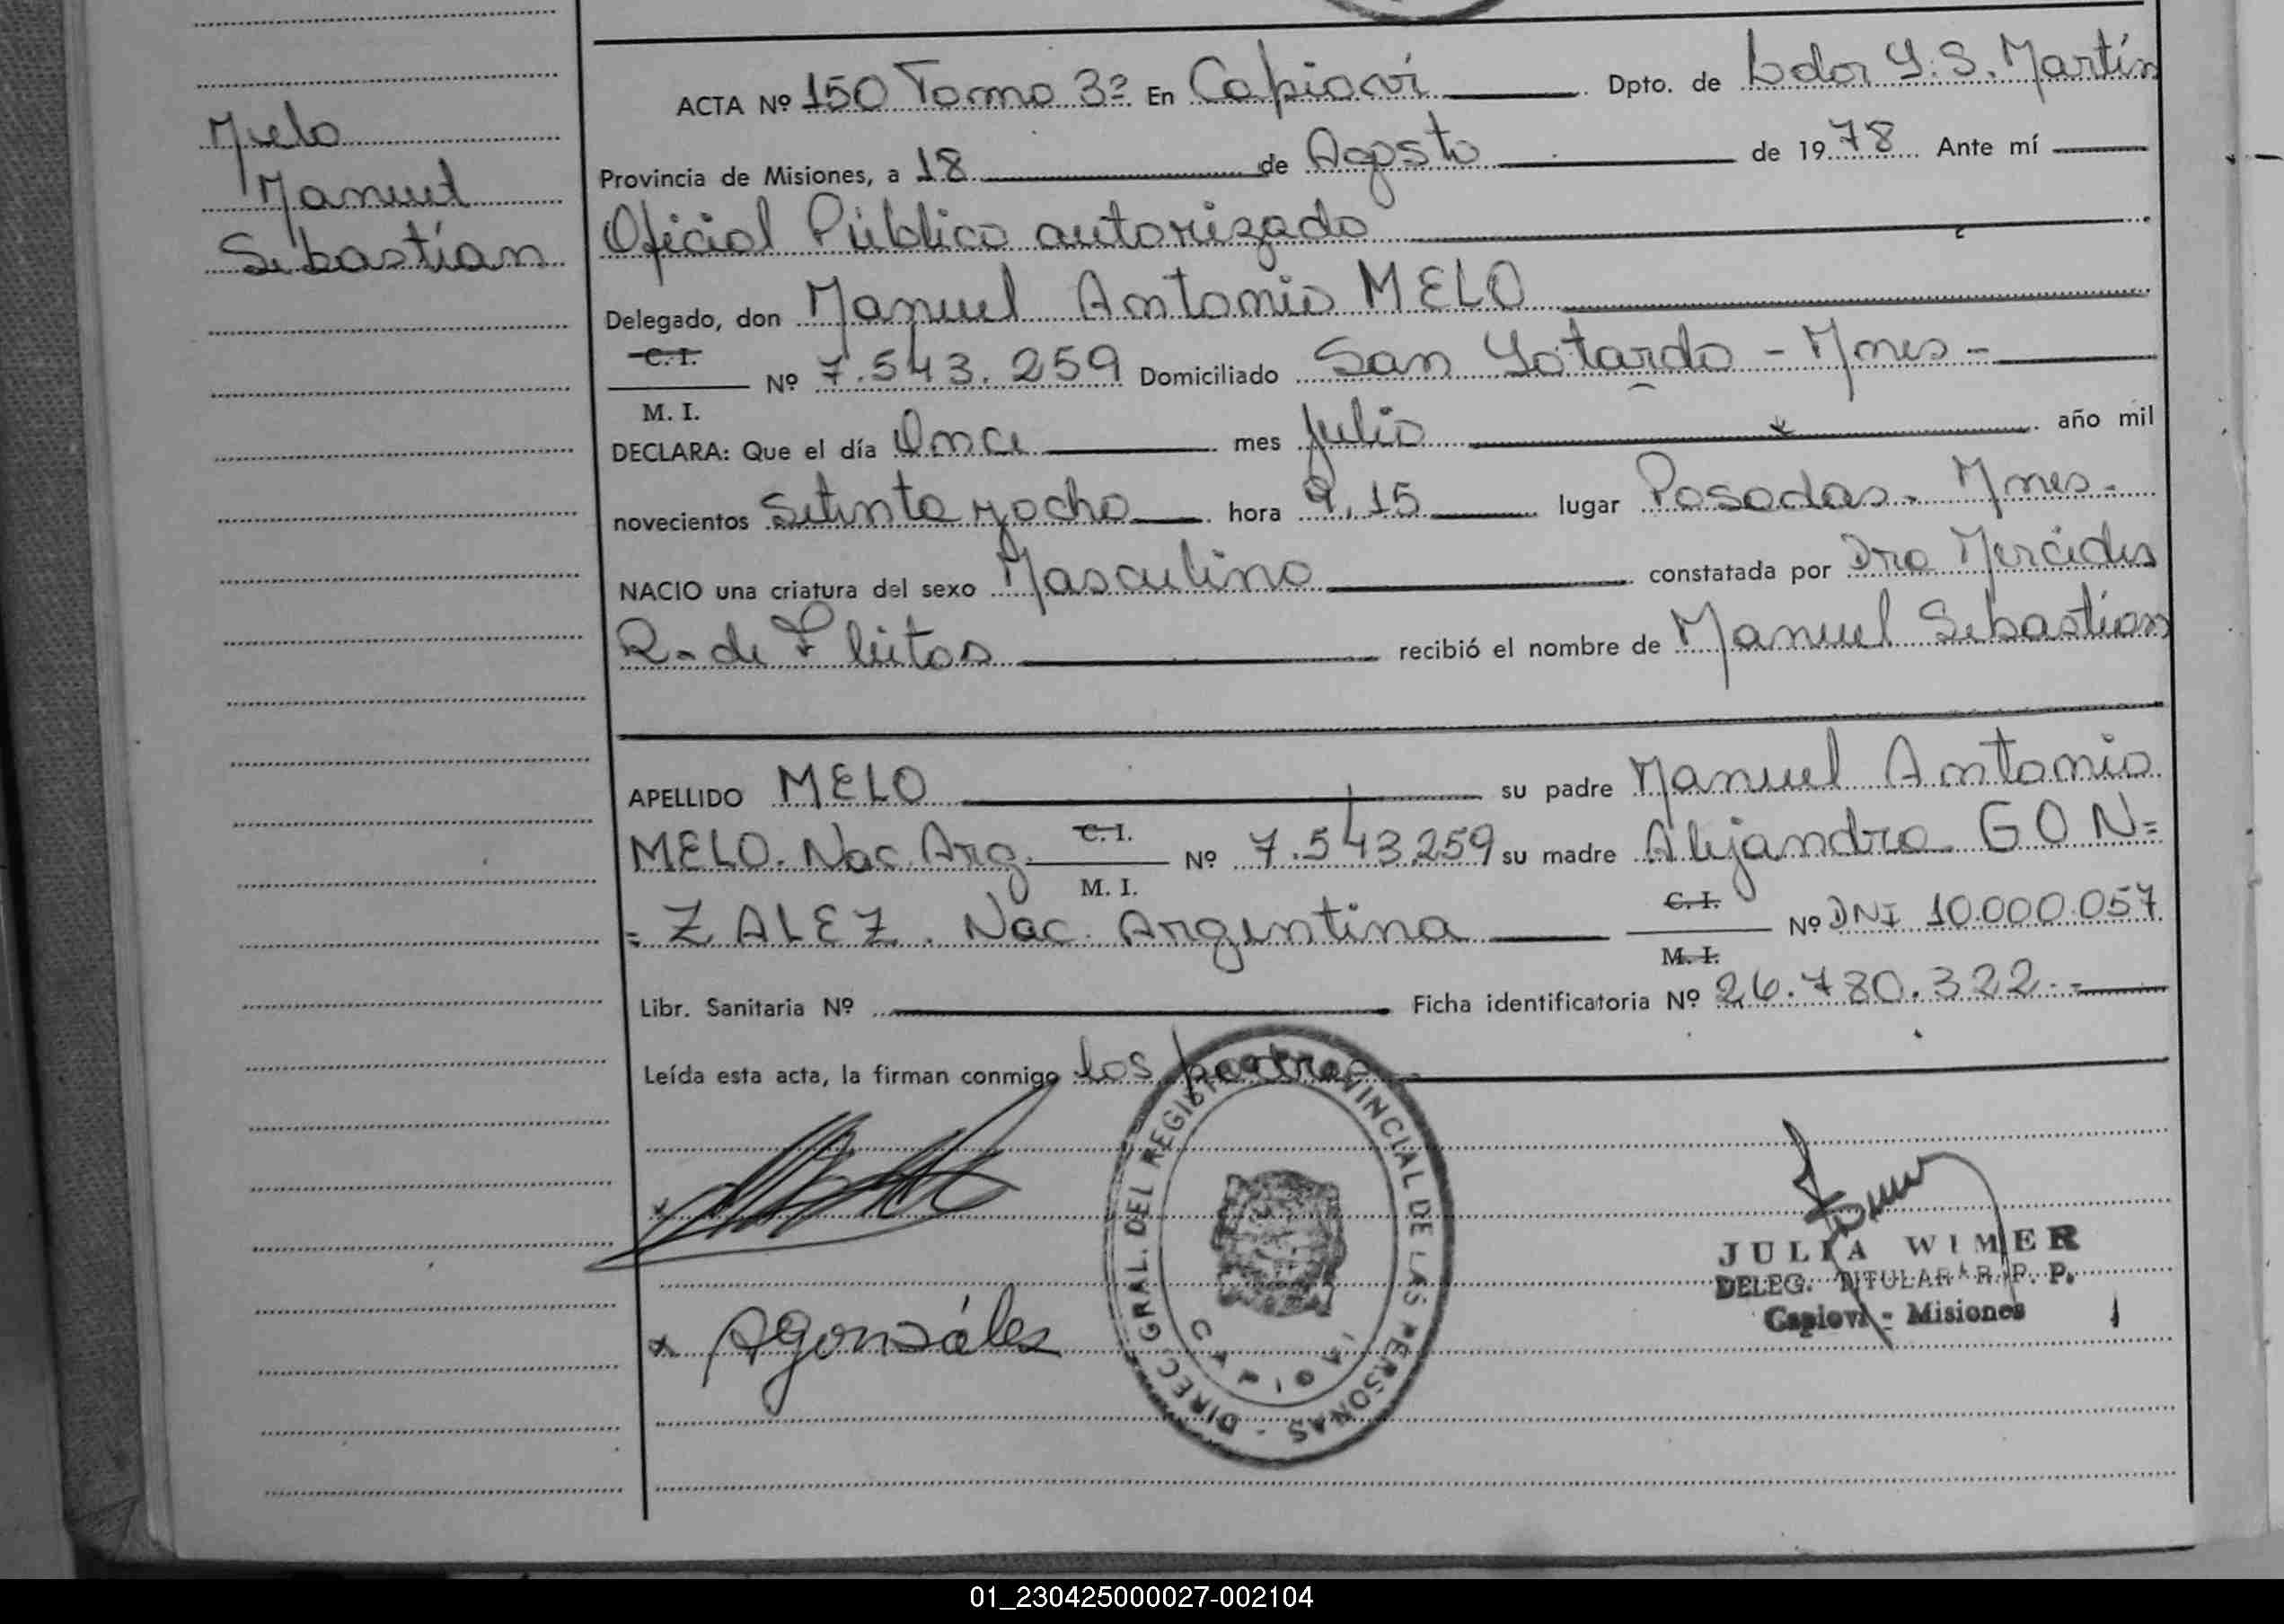 Melo
Manuel
Sebastían
ACTA Nº 150 Tomo 3º En Capioví Dpto. de Ldor G.S. Martín
Provincia de Misiones, a 18 de Agosto de 1978 Ante mí
Oficial Público autorizado
Delegado, don Manuel Antonio MELO
C. I.
Nº 7.543.259 Domiciliado San Gotardo - Mnes -
M. I.
DECLARA: Que el día Once mes Julio año mil
novecientos Setenta y ocho hora 9,15 lugar Posadas - Mnes -
NACIO una criatura del sexo Masculino constatada por Dra Mercedes
R. de Fleitas recibió el nombre de Manuel Sebastían
APELLIDO MELO su padre Manuel Antonio
MELO. Nac. Arg. C. I. Nº 7.543.259 su madre Alejandra GON=
M. I.
=ZALEZ. Nac. Argentina C. I. Nº DNI 10.000.057
M. I.
Libr. Sanitaria Nº Ficha identificatoria Nº 26.780.322.-
Leída esta acta, la firman conmigo los padres
DIREC. GRAL. DEL REGISTRO PROVINCIAL DE LAS PERSONAS -
CAPIOVI
x
x Agonzáles
JULIA WIMER
DELEG. TITULAR R. P. P.
Capioví - Misiones
01_230425000027-002104